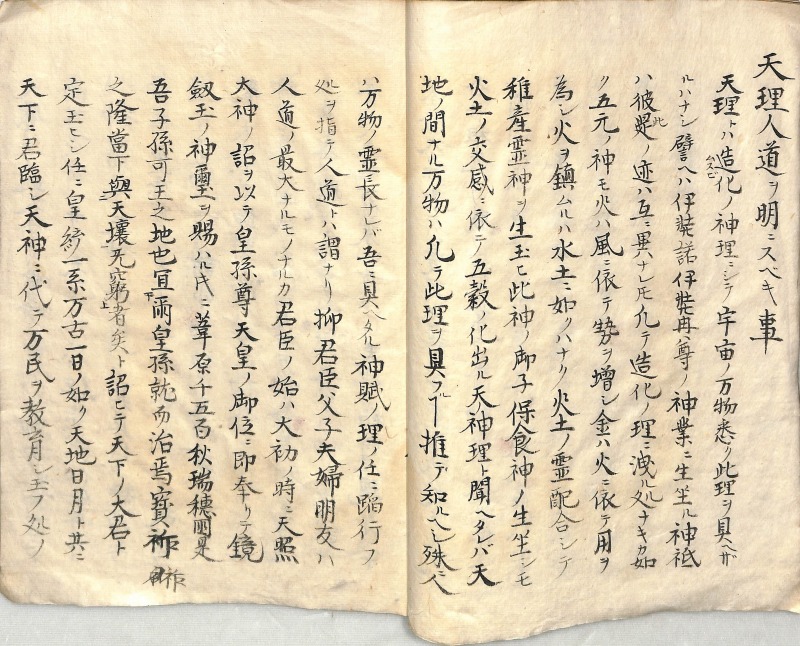 天理人道ヲ明ニスベキ事
天理トハ造化ノ神理ニシテ宇宙ノ万物悉ク此理ヲ具ヘザ
ルハナシ譬ヘハ伊弉諾伊弉冉尊ノ神業ニ生坐ル神祇
ハ彼是此ノ迹ハ互ニ異ナレ𪜈凡テ造化ノ理ニ洩ル処ナキカ如
ク五元ノ神モ火ハ風ニ依テ勢ヲ増シ金ハ火ニ依テ用ヲ
為シ火ヲ鎮ムルハ水土ニ如クハナク火土ノ霊配合シテ
稚産霊神ヲ生玉ヒ此神ノ御子保食神ノ生坐シモ
火土ノ交感ニ依テノ五穀ノ化出ル天神理ト聞ヘタレバ天
地ノ間ナル万物ハ凡テ此理ヲ具フヿ推テ知ルヘシ殊ニ人
ハ万物ノ霊長ナレバ吾ニ具ヘタル神賦ノ理ノ任ニ蹈行フ
処ヲ指テ人道トハ謂ナリ抑君臣父子夫婦朋友ハ
人道ノ最大ナルモノナルカ君臣ノ始ハ大初ノ時ニ天照
大神ノ詔ヲ以テ皇孫尊天皇ノ御位ニ即奉リテ鏡
劔玉ノ神璽ヲ賜ハル𪜈ニ葦原千五百秋瑞穂国是
吾子孫可王之地也宜爾皇孫就而治焉寳祚
之隆當下與天壌无窮者矣ト詔ヒテ天下ノ大君ト
定玉ヒシ任ニ皇統一系万古一日ノ如ク天地日月ト共ニ
天下ニ君臨シ天神ニ代テ万民ヲ教育シ玉フ処ノ
祚